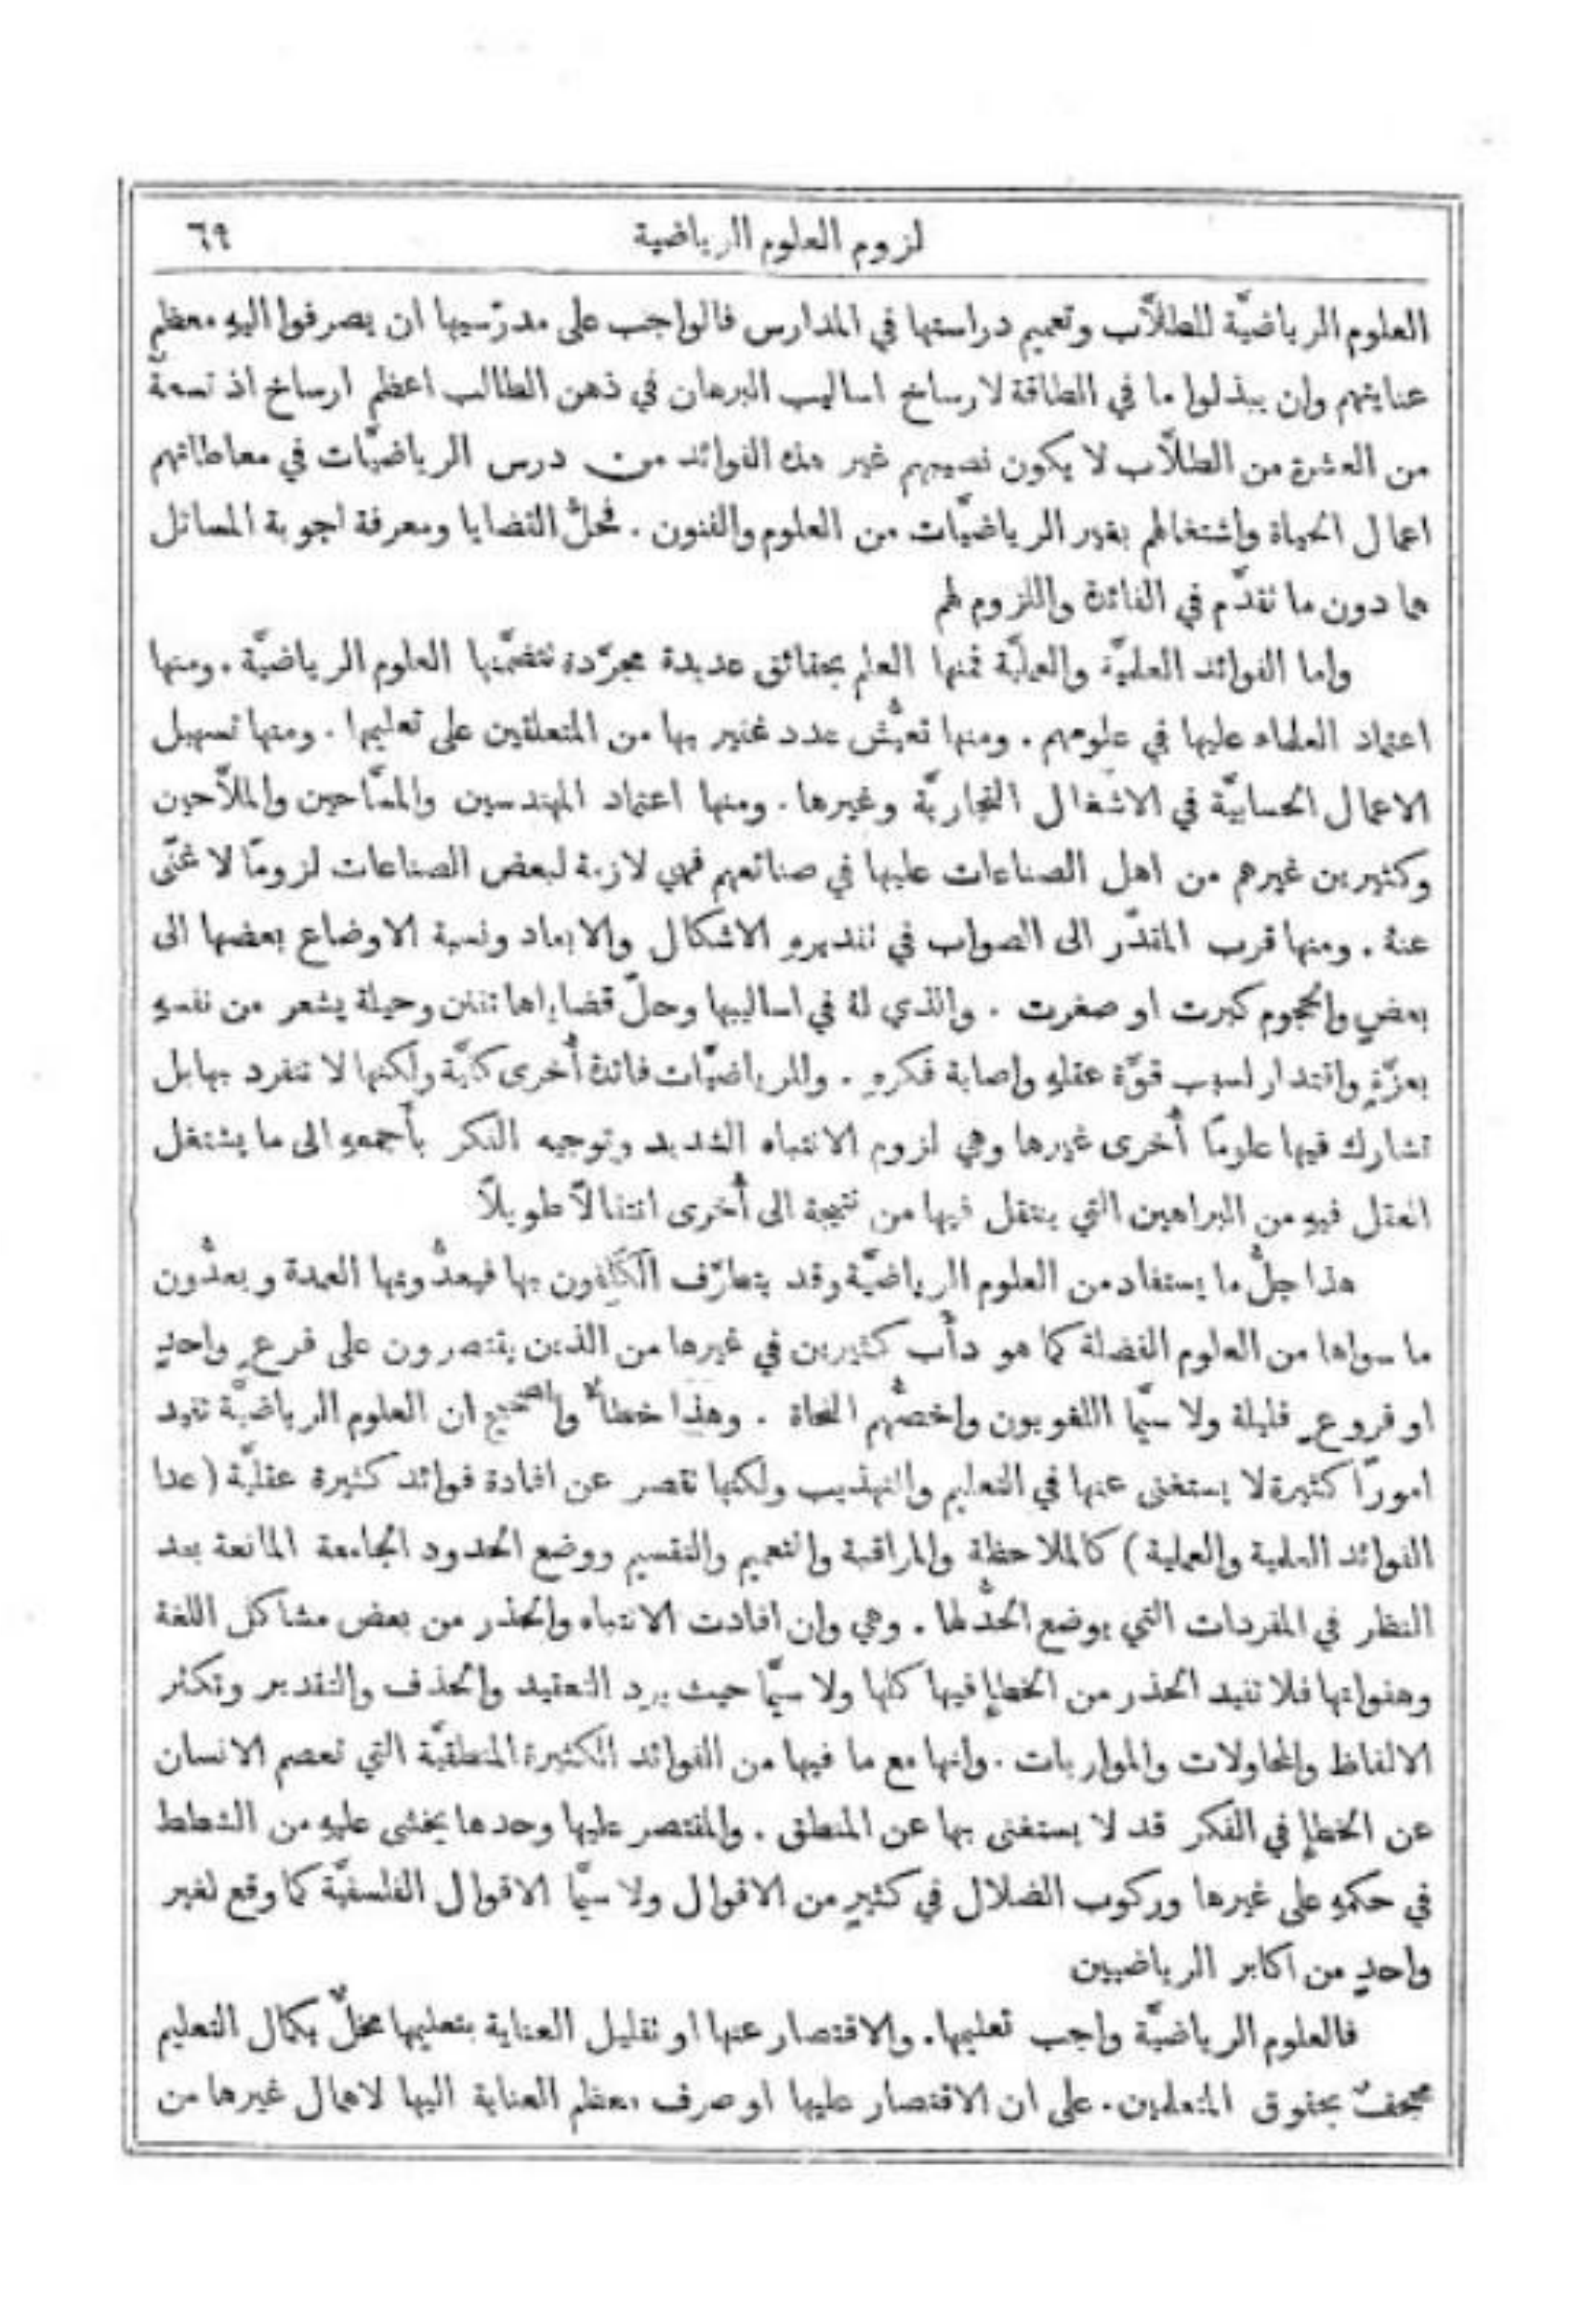 لزوم العلوم الرياضية ٦٩
العلوم الرياضيَّة للطلَّاب وتعميم دراستها في المدارس فالواجب على مدرّسيها ان يصرفوا اليهِ معظم
عنايتهم وان يبذلوا ما في الطاقة لارساخ اساليب البرهان في ذهن الطالب اعظم ارساخ اذ تسعةٌ
من العشرة من الطلَّاب لا يكون نصيبهم غير هذه الفوائد من درس الرياضيَّات في معاطاتهم
اعمال الحياة واشتغالهم بغير الرياضيَّات من العلوم والفنون . فحلُّ القضايا ومعرفة اجوبة المسائل
هما دون ما تقدَّم في الفائدة واللزوم لهم
واما الفوائد العلميَّة والعمليَّة فمنها العلم بحقائق عديدة مجرَّدة تتضمَّنها العلوم الرياضيَّة . ومنها
اعتماد العلماء عليها في علومهم . ومنها تعيُّش عدد غفير بها من المتعلقين على تعليمها . ومنها تسهيل
الاعمال الحسابيَّة في الاشغال التجاريَّة وغيرها . ومنها اعتماد المهندسين والمسَّاحين والملَّاحين
وكثيرين غيرهم من اهل الصناعات عليها في صنائعهم فهي لازمة لبعض الصناعات لزومًا لا غنًى
عنهُ . ومنها قرب المقدّر الى الصواب في تقديرهِ الاشكال والابعاد ونسبة الاوضاع بعضها الى
بعضٍ والحجوم كبرت او صغرت . والذي لهُ في اساليبها وحلّ قضاياها تفنن وحيلة يشعر من نفسهِ
بعزّةٍ واقتدار لسبب قوَّة عقلهِ واصابة فكرهِ . وللرياضيَّات فائدة أُخرى كليَّة ولكنها لا تنفرد بها بل
تشارك فيها علومًا أُخرى غيرها وهي لزوم الانتباه الشديد وتوجيه الفكر بأَجمعهِ الى ما يشتغل
العقل فيهِ من البراهين التي ينتقل فيها من نتيجة الى أُخرى انتقالًا طويلًا
هذا جلُّ ما يستفاد من العلوم الرياضيَّة وقد يتطرَّف الكَلِفون بها فيعدُّونها العمدة ويعدُّون
ما سواها من العلوم الفضلة كما هو دأب كثيرين في غيرها من الذين يقتصرون على فرعٍ واحدٍ
او فروعٍ قليلة ولا سيَّما اللغويون واخصُّهم النحاة . وهذا خطأٌ والصحيح ان العلوم الرياضيَّة تفيد
امورًا كثيرة لا يستغنى عنها في التعليم والتهذيب ولكنها تقصر عن افادة فوائد كثيرة عقليَّة (عدا
الفوائد العلمية والعملية) كالملاحظة والمراقبة والتعميم والتقسيم ووضع الحدود الجامعة المانعة بعد
النظر في المفردات التي يوضع الحدُّ لها . وهي وان افادت الانتباه والحذر من بعض مشاكل اللغة
وهفواتها فلا تفيد الحذر من الخطإِ فيها كلها ولا سيَّما حيث يرد التعقيد والحذف والتقدير وتكثر
الالفاظ والمحاولات والمواربات . وانها مع ما فيها من الفوائد الكثيرة المنطقيَّة التي تعصم الانسان
عن الخطإِ في الفكر قد لا يستغنى بها عن المنطق . والمقتصر عليها وحدها يخشى عليهِ من الشطط
في حكمهِ على غيرها وركوب الضلال في كثيرٍ من الاقوال ولا سيَّما الاقوال الفلسفيَّة كما وقع لغير
واحدٍ من اكابر الرياضيين
فالعلوم الرياضيَّة واجب تعليمها . والاقتصار عنها او تقليل العناية بتعليمها مخلٌّ بكمال التعليم
مجحفٌ بحقوق المتعلمين . على ان الاقتصار عليها او صرف معظم العناية اليها لاهمال غيرها من